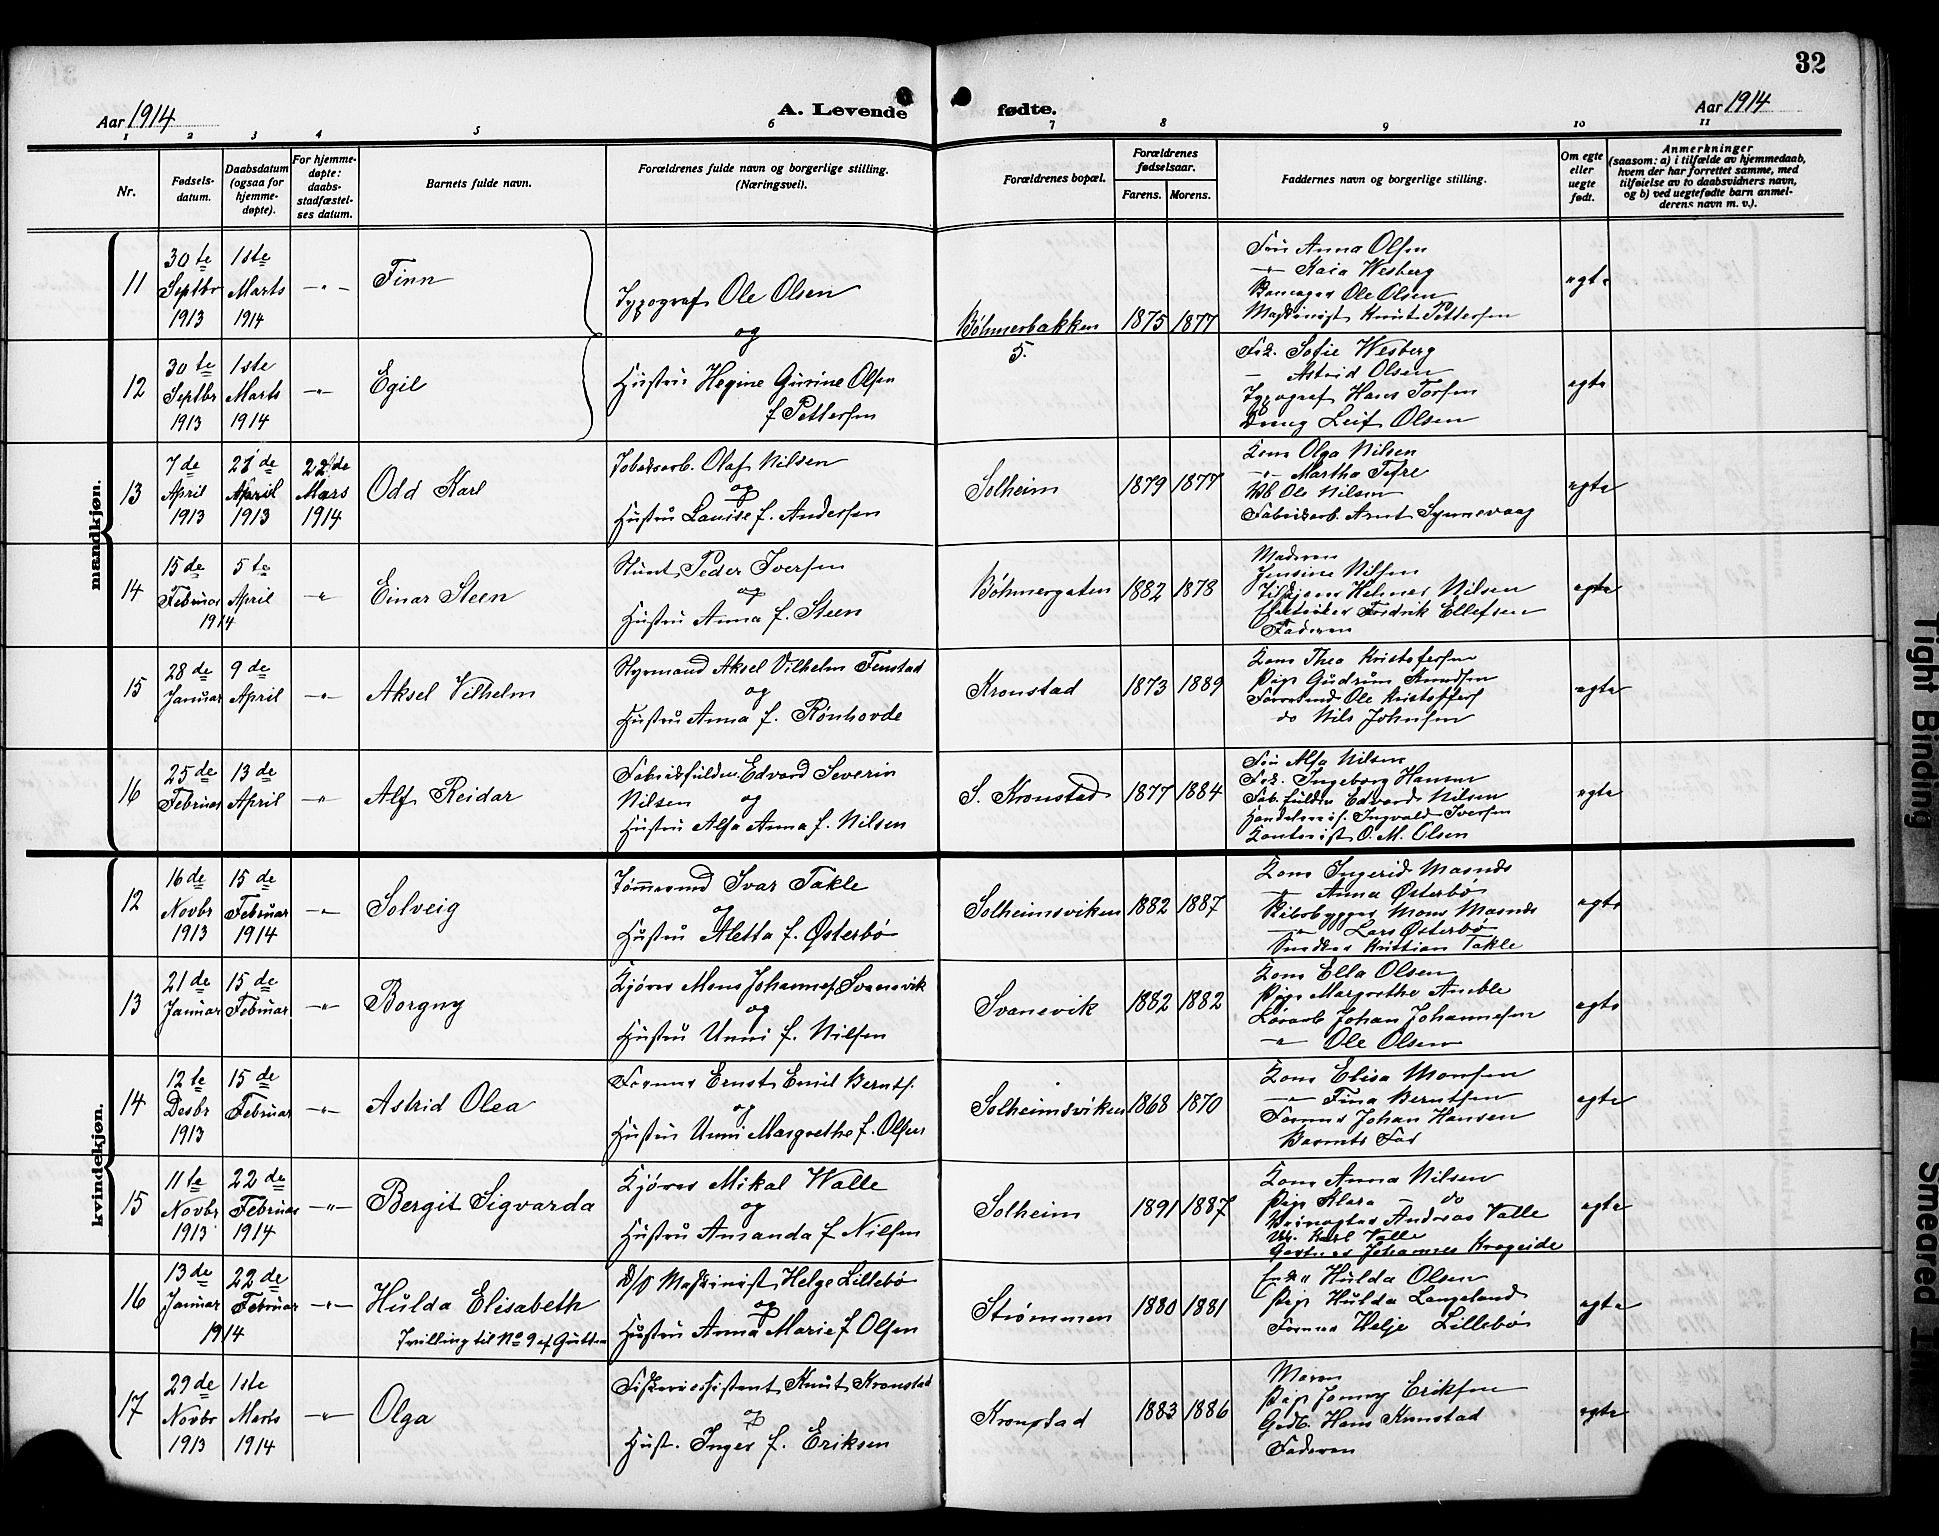 32
Aar 1914
A. Levende fødte.
Aar 1914
1 2 3 4 5 6 7 8 9 10 11
Nr.
Fødselsdatum.
Daabsdatum (ogsaa for hjemmedøpte).
For hjemmedøpte: daabsstadfæstelses datum.
Barnets fulde navn.
Forældrenes fulde navn og borgerlige stilling. (Næringsvei).
Forældrenes bopæl.
Forældrenes fødselsaar.
Farens. Morens.
Faddernes navn og borgerlige stilling.
Om egte eller uegte født.
Anmerkninger
(saasom: a) i tilfælde av hjemmedaab,
hvem der har forrettet samme, med
tilføielse av to daabsvidners navn,
og b) ved uegtefødte barn anmelderens navn m. v.).
mandkjøn.
11
30te Septbr 1913
1ste Marts 1914
Finn
Typograf Ole Olsen
og
Bøhmerbakken 5.
1875 1877
Fru Anna Olsen
Kaia Wesberg
Ole Olsen
Maskinist Knut Pettersen
egte
12
30te Septbr 1913
1ste Marts 1914
Egil
Hustru Hegine Gurine Olsen
f Pettersen
Frk. Sofie Wesberg
Astrid Olsen
Typograf Hans Torsen
Leif Olsen
egte
13
7de April 1913
21de April 1913
22de Mars 1914
Odd Karl
Olaf Nilsen
og
Hustru Louise f. Andersen
Solheim
1879 1877
Kone Olga Nilsen
Martha Tefre
Ole Nilsen
Fabrikarb. Arnt Synnevaag
egte
14
15de Februar 1914
5te April
Einar Steen
Peder Iversen
og
Hustru Anna f. Steen
Bøhmergaten
1882 1878
Moderen
Jensine Nilsen
Helmer Nilsen
Fredrik Ellefsen
Faderen
egte
15
28de Januar
9de April
Aksel Vilhelm
Styrmand Aksel Vilhelm Fenstad
og
Hustru Anna f. Rønhovde
Kronstad
1873 1889
Kone Thea Kristofersen
Pige Gudrun Knudsen
Ole Kristoffers
do Nils Johnsen
egte
16
25de Februar
13de April
Alf Reidar
Edvard Severin
Nilsen og
Hustru Alfa Anna f. Nilsen
S. Kronstad
1877 1884
Fru Alfa Nilsen
Frk. Ingeborg Hansen
Edvard Nilsen
Ingvald Iversen
Kontorist O. M. Olsen
egte
kvindekjøn.
12
16de Novbr 1913
15de Februar 1914
Solveig
Tømmermd Ivar Takle
og
Hustru Aletta f. Østerbø
Solheimsviken
1882 1887
Kone Ingerid Masnes
Anna Østerbø
Skibsbygger Mons Masnes
Lars Østerbø
Snedker Kristian Takle
egte
13
21de Januar
15de Februar
Borgny
Kjører Mons Johannes Svanevik
og
Hustru Unni f. Nilsen
Svanevik
1882 1882
Kone Ella Olsen
Pige Margrethe Amble
Johan Johannesen
Ole Olsen
egte
14
12te Desbr 1913
15de Februar
Astrid Olea
Former Ernst Emil Bernts.
og
Hustru Unni Margrethe f. Olsen
Solheimsviken
1868 1870
Kone Elisa Monsen
Tina Berntsen
Former Johan Hansen
Barnets Far
egte
15
11te Novbr 1913
22de Februar 1914
Bergit Sigvarda
Kjører Mikal Walle
og
Hustru Amanda f Nilsen
Solheim
1891 1887
Kone Anna Nilsen
Pige Klara do
Andreas Valle
Karl Valle
Gartner Johannes Krogeide
egte
16
13de Januar 1914
22de Februar
Hulda Elisabeth
Tvilling til No 9 af Gutten
D/S Maskinist Helge Lillebø
og
Hustru Anna Marie f Olsen
Strømmen
1880 1881
Hulda Olsen
Pige Hulda Langeland
Former Helje Lillebø
egte
17
29de Novbr 1913
1ste Marts 1914
Olga
Fiskeriassistent Knut Kronstad
og
Hust. Inger f. Eriksen
Kronstad
1883 1886
Moren
Pige Jenny Eriksen
Gbdb. Hans Kronstad
Faderen
egte
Tight Binding
Smeared Ink